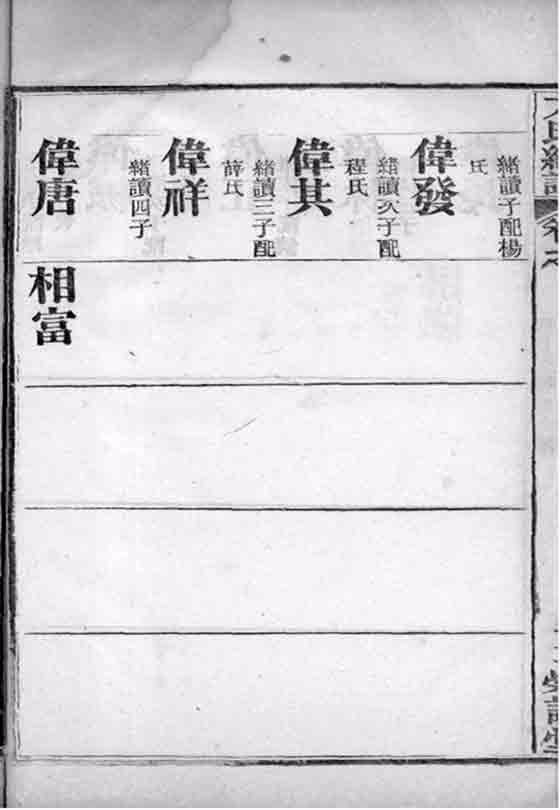 緒讀子配楊
氏
偉發
緒讀次子配
程氏
偉其
緒讀三子配
薛氏
偉祥
緒讀四子
偉唐
相富